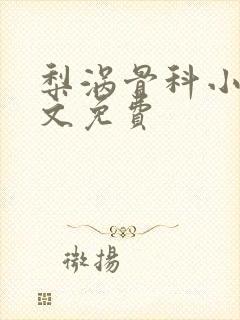 梨涡骨科小
文免費
微揚